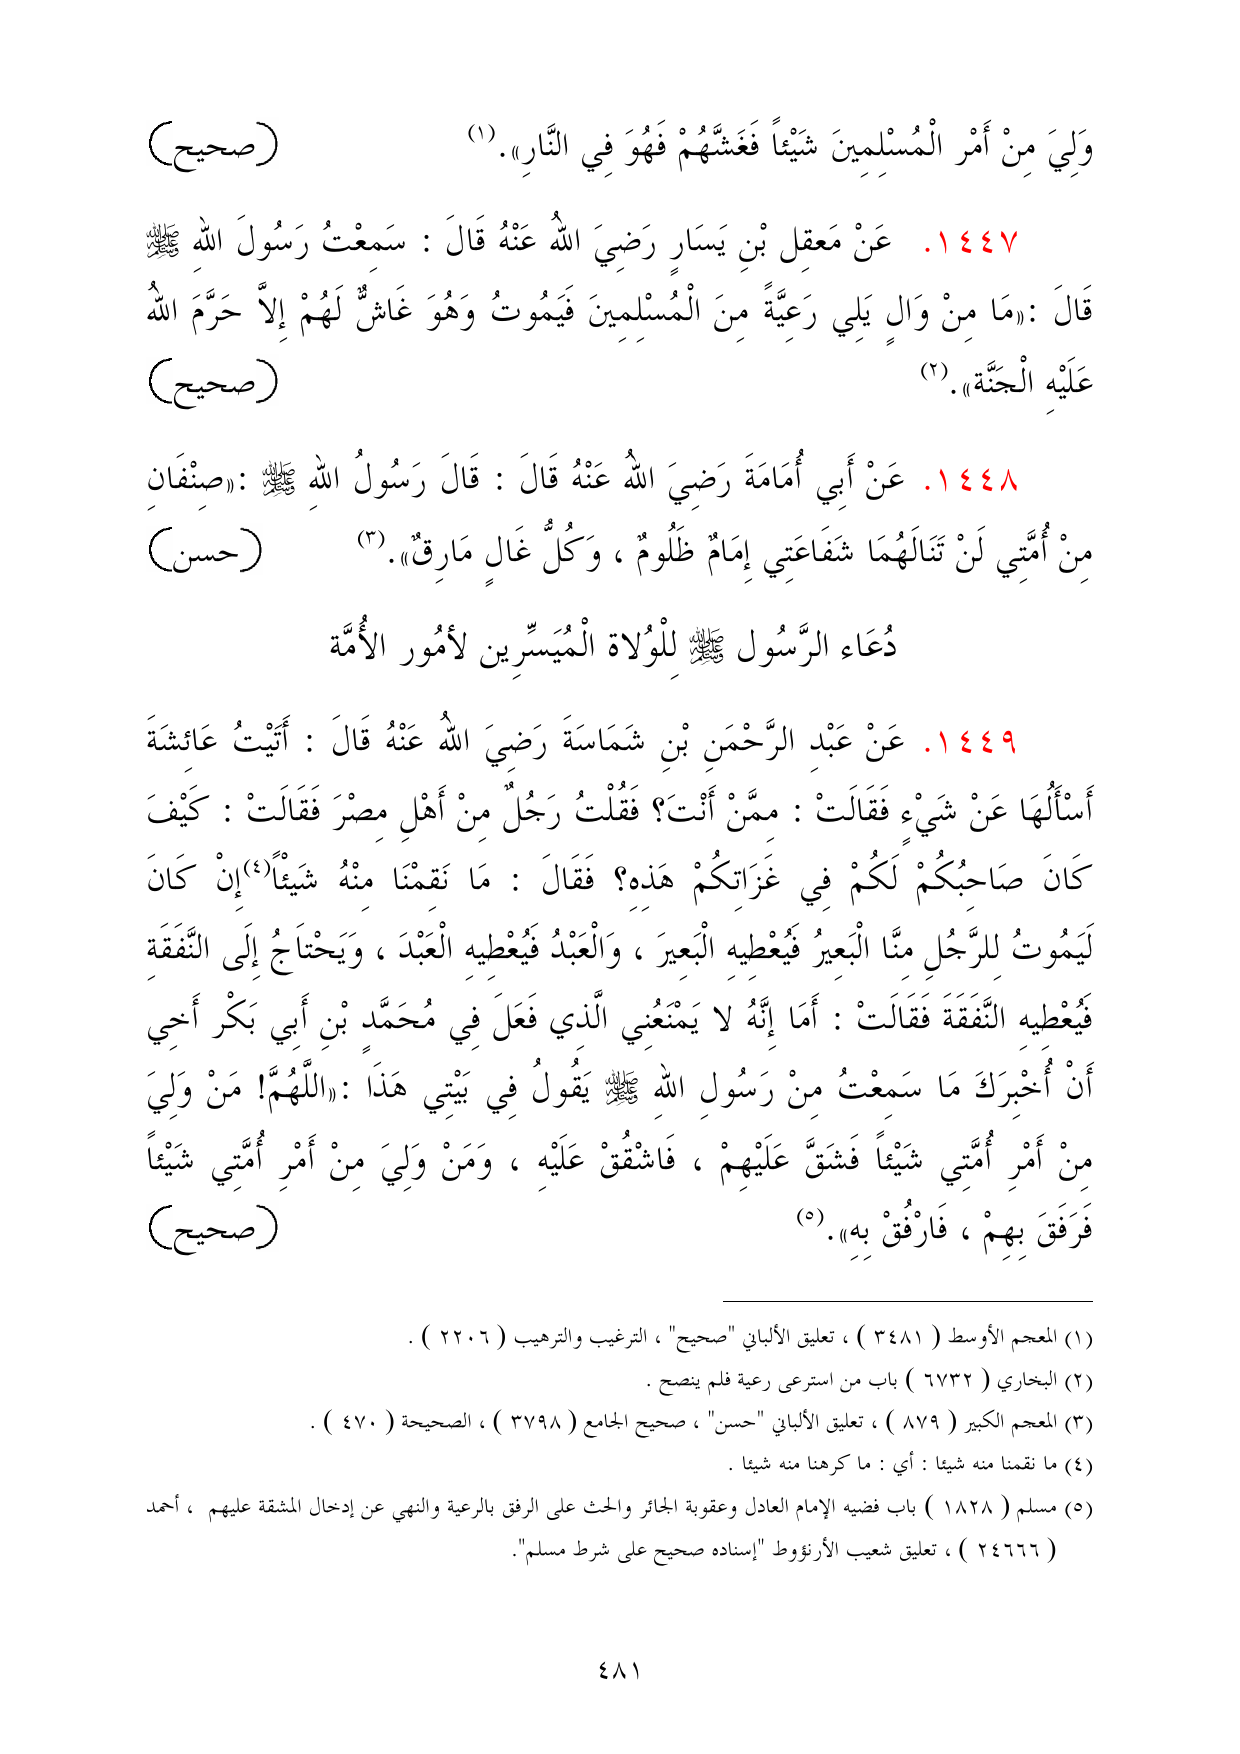 وَلِيَ مِنْ أَمْرِ الْمُسْلِمِينَ شَيْئاً فَغَشَّهُمْ فَهُوَ فِي النَّارِ». (١) (صحيح)
١٤٤٧. عَنْ مَعقِلِ بْنِ يَسَارٍ رَضِيَ اللهُ عَنْهُ قَالَ : سَمِعْتُ رَسُولَ اللهِ ﷺ
قَالَ :«مَا مِنْ وَالٍ يَلِي رَعِيَّةً مِنَ الْمُسْلِمِينَ فَيَمُوتُ وَهُوَ غَاشٌّ لَهُمْ إِلاَّ حَرَّمَ اللهُ
عَلَيْهِ الْجَنَّة». (٢) (صحيح)
١٤٤٨. عَنْ أَبِي أُمَامَةَ رَضِيَ اللهُ عَنْهُ قَالَ : قَالَ رَسُولُ اللهِ ﷺ :«صِنْفَانِ
مِنْ أُمَّتِي لَنْ تَنَالَهُمَا شَفَاعَتِي إِمَامٌ ظَلُومٌ ، وَكُلُّ غَالٍ مَارِقٌ». (٣) (حسن)
دُعَاء الرَّسُول ﷺ لِلْوُلاة الْمُيَسِّرِين لأمُور الأُمَّة
١٤٤٩. عَنْ عَبْدِ الرَّحْمَنِ بْنِ شَمَاسَةَ رَضِيَ اللهُ عَنْهُ قَالَ : أَتَيْتُ عَائِشَةَ
أَسْأَلُهَا عَنْ شَيْءٍ فَقَالَتْ : مِمَّنْ أَنْتَ؟ فَقُلْتُ رَجُلٌ مِنْ أَهْلِ مِصْرَ فَقَالَتْ : كَيْفَ
كَانَ صَاحِبُكُمْ لَكُمْ فِي غَزَاتِكُمْ هَذِهِ؟ فَقَالَ : مَا نَقِمْنَا مِنْهُ شَيْئاً(٤)إِنْ كَانَ
لَيَمُوتُ لِلرَّجُلِ مِنَّا الْبَعِيرُ فَيُعْطِيهِ الْبَعِيرَ ، وَالْعَبْدُ فَيُعْطِيهِ الْعَبْدَ ، وَيَحْتَاجُ إِلَى النَّفَقَةِ
فَيُعْطِيهِ النَّفَقَةَ فَقَالَتْ : أَمَا إِنَّهُ لا يَمْنَعُنِي الَّذِي فَعَلَ فِي مُحَمَّدٍ بْنِ أَبِي بَكْرٍ أَخِي
أَنْ أُخْبِرَكَ مَا سَمِعْتُ مِنْ رَسُولِ اللهِ ﷺ يَقُولُ فِي بَيْتِي هَذَا :«اللَّهُمَّ! مَنْ وَلِيَ
مِنْ أَمْرِ أُمَّتِي شَيْئاً فَشَقَّ عَلَيْهِمْ ، فَاشْقُقْ عَلَيْهِ ، وَمَنْ وَلِيَ مِنْ أَمْرِ أُمَّتِي شَيْئاً
فَرَفَقَ بِهِمْ ، فَارْفُقْ بِهِ». (٥) (صحيح)
(١) المعجم الأوسط ( ٣٤٨١ ) ، تعليق الألباني "صحيح" ، الترغيب والترهيب ( ٢٢٠٦ ) .
(٢) البخاري ( ٦٧٣٢ ) باب من استرعى رعية فلم ينصح .
(٣) المعجم الكبير ( ٨٧٩ ) ، تعليق الألباني "حسن" ، صحيح الجامع ( ٣٧٩٨ ) ، الصحيحة ( ٤٧٠ ) .
(٤) ما نقمنا منه شيئا : أي : ما كرهنا منه شيئا .
(٥) مسلم ( ١٨٢٨ ) باب فضيه الإمام العادل وعقوبة الجائر والحث على الرفق بالرعية والنهي عن إدخال المشقة عليهم ، أحمد
( ٢٤٦٦٦ ) ، تعليق شعيب الأرنؤوط "إسناده صحيح على شرط مسلم".
٤٨١